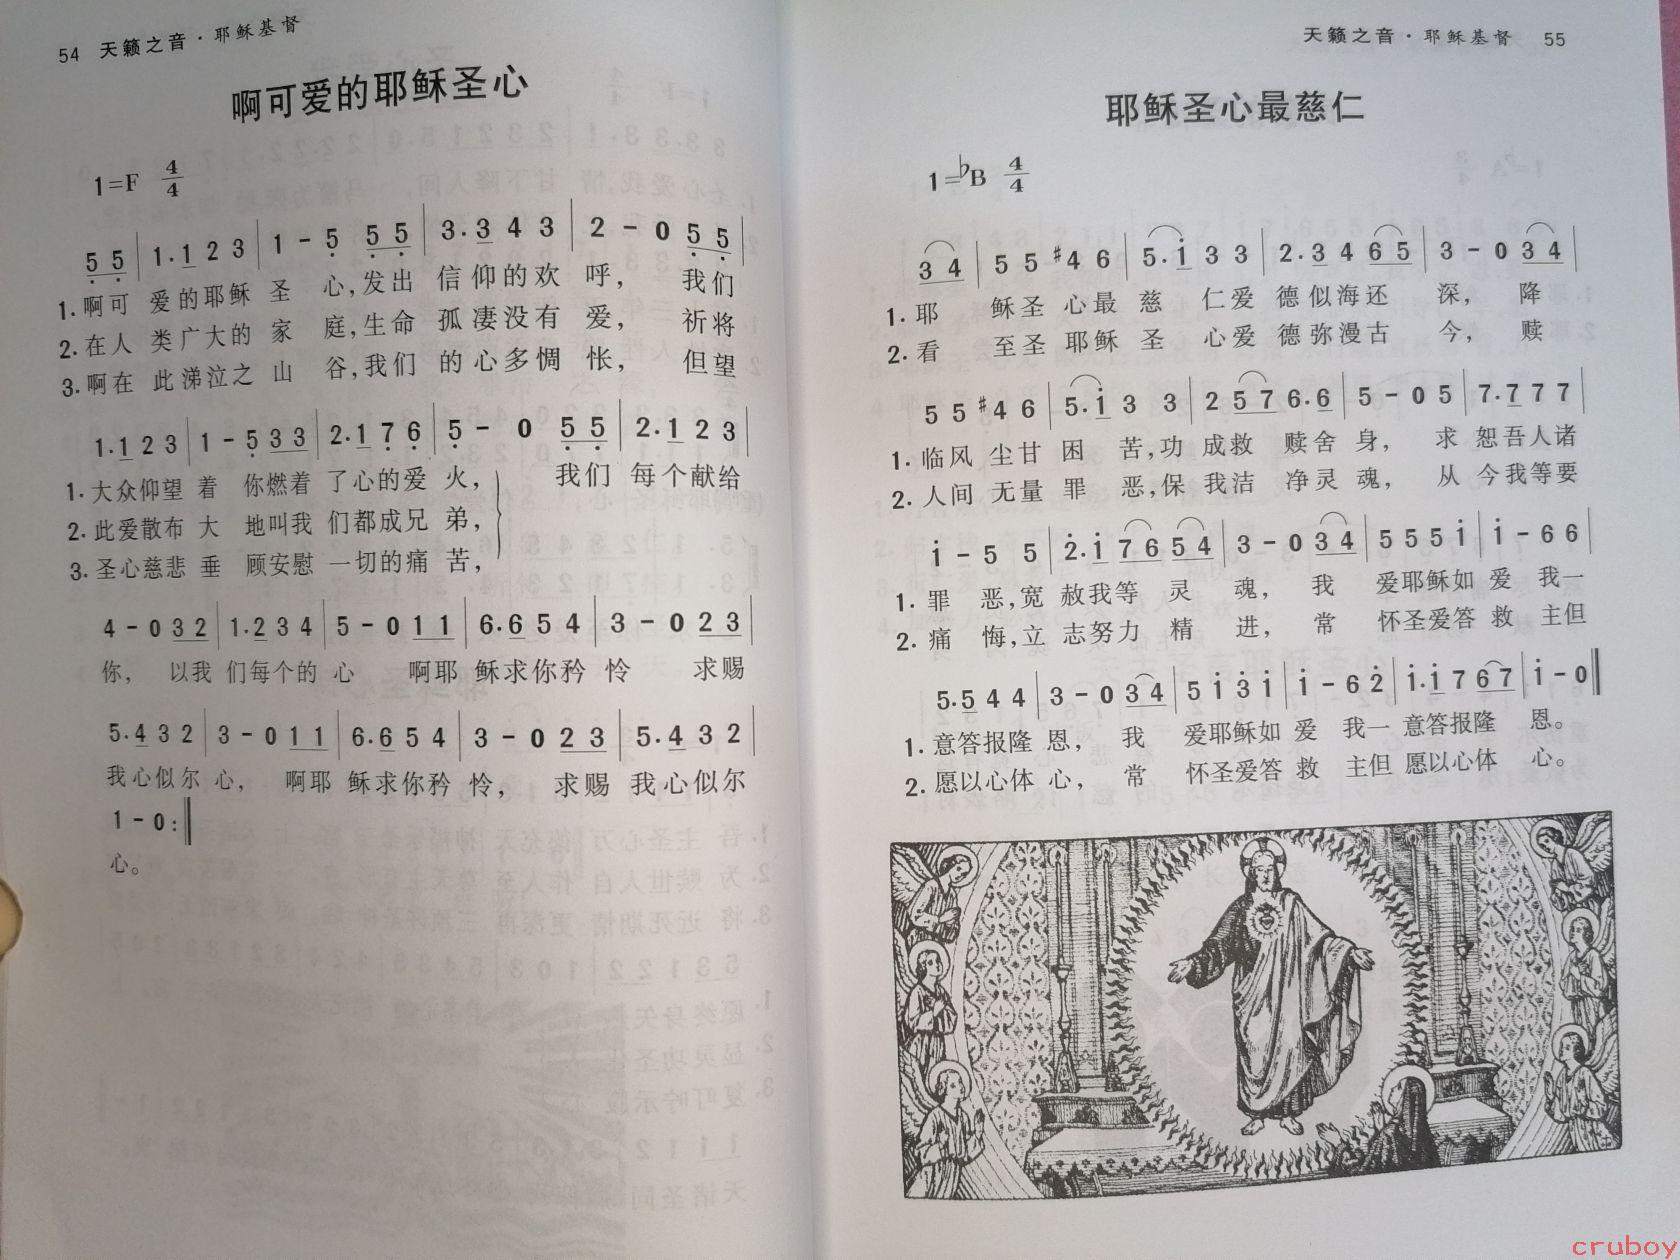 54 天籁之音·耶稣基督
啊可爱的耶稣圣心
1=F 4/4
5 5 | 1·1 2 3 | 1 - 5 5 5 | 3·3 4 3 | 2 - 0 5 5 |
1.啊可 爱的耶稣 圣 心,发出 信仰的欢 呼, 我们
2.在人 类广大的 家 庭,生命 孤凄没有 爱, 祈将
3.啊在 此涕泣之 山 谷,我们 的心多惆 怅, 但望
1·1 2 3 | 1 - 5 3 3 | 2·1 7 6 | 5 - 0 5 5 | 2·1 2 3 |
1.大众仰望 着 你燃着 了心的爱 火, 我们 每个献给
2.此爱散布 大 地叫我 们都成兄 弟,
3.圣心慈悲 垂 顾安慰 一切的痛 苦,
4 - 0 3 2 | 1·2 3 4 | 5 - 0 1 1 | 6·6 5 4 | 3 - 0 2 3 |
你, 以我 们每个的 心 啊耶 稣求你矜 怜 求赐
5·4 3 2 | 3 - 0 1 1 | 6·6 5 4 | 3 - 0 2 3 | 5·4 3 2 |
我心似尔 心, 啊耶 稣求你矜 怜, 求赐 我心似尔
1 - 0 :‖
心。
天籁之音·耶稣基督 55
耶稣圣心最慈仁
1=♭B 4/4
3 4 | 5 5 ♯4 6 | 5·i 3 3 | 2·3 4 6 5 | 3 - 0 3 4 |
1.耶 稣圣 心最 慈 仁爱 德似海还 深, 降
2.看 至圣 耶稣 圣 心爱 德弥漫古 今, 赎
5 5 ♯4 6 | 5·i 3 3 | 2 5 7 6·6 | 5 - 0 5 | 7·7 7 7 |
1.临风 尘甘 困 苦,功 成救 赎舍 身, 求 恕吾人诸
2.人间 无量 罪 恶,保 我洁 净灵 魂, 从 今我等要
i - 5 5 | 2·i 7 6 5 4 | 3 - 0 3 4 | 5 5 5 i | i - 6 6 |
1.罪 恶,宽 赦我等 灵 魂, 我 爱耶稣如 爱 我一
2.痛 悔,立 志努力 精 进, 常 怀圣爱答 救 主但
5·5 4 4 | 3 - 0 3 4 | 5 i 3 i | i - 6 2 | i·i 7 6 7 | i - 0 ‖
1.意答报隆 恩, 我 爱耶稣如 爱 我一 意答报隆 恩。
2.愿以心体 心, 常 怀圣爱答 救 主但 愿以心体 心。
cruboy